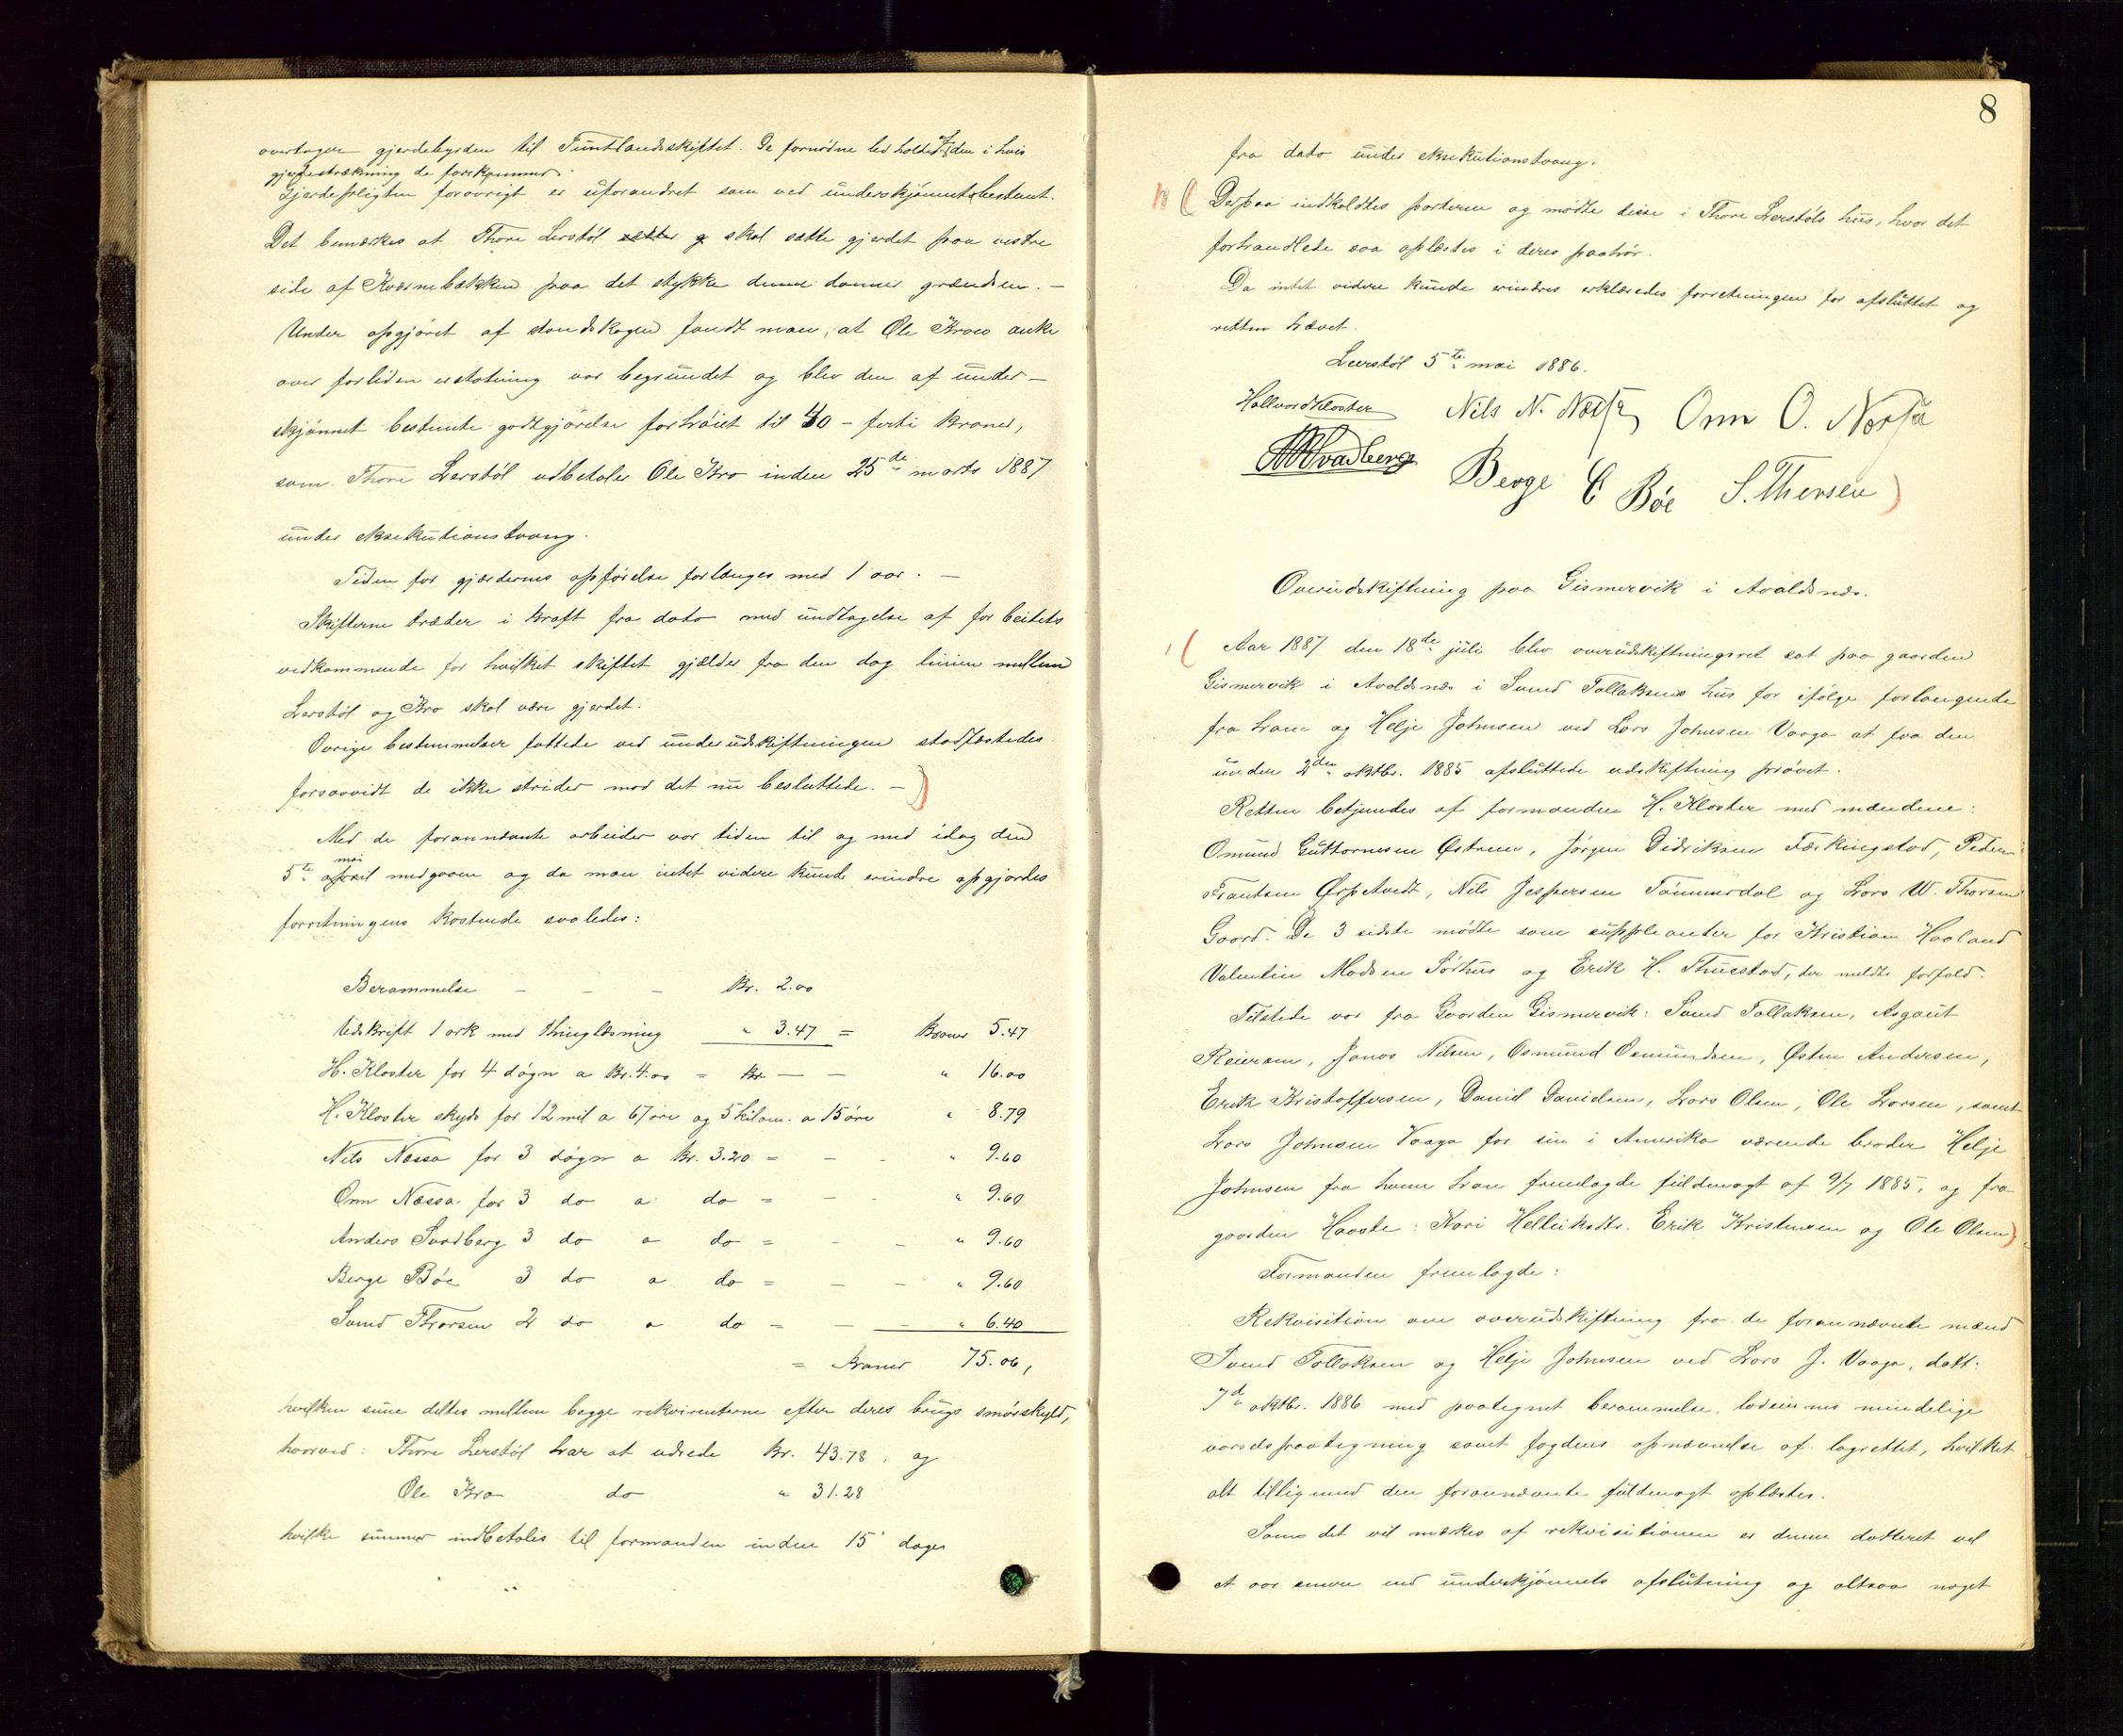 overtager gjerdebyrden til Tuntlandsskiftet. De fornødne led holdes af den i hvis
gjerdestrækning de forekommer.
Gjerdepligten forøvrigt er uforandret som ved underskjønnet bestemt.
Det bemærkes at Thore Lerstøl sætter g skal sætte gjerdet paa vestre
side af Kværnebækken paa det stykke denne danner grændsen. –
Under opgjøret af standskogen fandt man, at Ole Kroes anke
over forliden erstatning var begrundet og blev den af under–
skjønnet bestemte godtgjørelse forhøiet til 40 – førti kroner,
som Thore Lerstøl udbetaler Ole Kro inden 25de marts 1887
under eksekutionstvang.
Tiden for gjærdernes opførelse forlænges med 1 aar. –
Skifterne træder i kraft fra dato med undtagelse af for beitets
vedkommende for hvilket skiftet gjælder fra den dag linien mellem
Lerstøl og Kro skal være gjerdet.
Øvrige bestemmelser fattede ved underudskiftningen stadfæstedes
forsaavidt de ikke strider mod det nu besluttede. –
Med de forannævnte arbeider var tiden til og med idag den
mai
5te april medgaaen og da man intet videre kunde erindre opgjordes
forretningens kostende saaledes:
Berammelse – – – Kr. 2.00
Udskrift 1 ark med thinglæsning " 3.47 = Kroner 5.47
H. Kloster for 4 døgn a Kr. 4.00 = Kr. – – " 16.00
H. Kloster skyds for 12 mil a 67 øre og 5 kilom. a 15 øre " 8.79
Nils Næssa for 3 døgn a Kr. 3.20 = – – " 9.60
Omn Næssa for 3 do a do = – – " 9.60
Anders Svadberg 3 do a do = – – " 9.60
Berge Bøe 3 do a do = – – " 9.60
Svend Thorsen 2 do a do = – – " 6.40
= Kroner 75.06,
hvilken sum deltes mellem begge rekvirenterne efter deres brugs smørskyld,
hvorved: Thore Lerstøl har at udrede Kr. 43.78, og
Ole Kro do " 31.28
hvilke summer indbetales til formanden inden 15 dager
8
fra dato under eksekutionstvang.
Derpaa indkaldtes parterne og mødte disse i Thore Lerstøls hus, hvor det
forhandlede saa oplæstes i deres paahør.
Da intet videre kunde erindres erklæredes forretningen for afsluttet og
retten hævet.
Leerstøl 5te mai 1886.
Hallvard Kloster Nils N. Næssa Omn O. Nessa
A Svadberg Berge E Böe S. Thorsen
Overudskiftning paa Gismervik i Avaldsnæs.
Aar 1887 den 18de juli blev overudskiftningsret sat paa gaarden
Gismervik i Avaldsnæs i Svend Tollaksens hus for ifølge forlangende
fra ham og Helje Johnsen ved Lars Johnsen Vaaga at faa den
under 2den oktbr. 1885 afsluttede udskiftning prøvet.
Retten betjendes af formanden H. Kloster med mændene:
Omund Guttormsen Østrem, Jørgen Didriksen Færkingstad, Peder
Frantsen Ørpetvedt, Nils Jespersen Tømmerdal og Lars W. Thorsen
Gaard. De 3 sidste mødte som suppleanter for Kristian Haaland
Valentin Madsen Sørhus og Erik H. Thuestad, der meldte forfald.
Tilstede var fra Gaarden Gismervik: Svend Tollaksen, Asgaut
Reiersen, Jonas Nilsen, Osmund Osmundsen, Østen Andersen,
Erik Kristoffersen, Daniel Danielsen, Lars Olsen, Ole Larsen, samt
Lars Johnsen Vaaga for sin i Amerika værende broder Helje
Johnsen fra hvem han fremlagde fuldmagt af 9/7 1885, og fra
gaarden Haaste: Kari Helleiksdtr. Erik Kristensen og Ole Olsen.
Formanden fremlagde:
Rekvisition om overudskiftning fra de forannævnte mænd
Svend Tollaksen og Helje Johnsen ved Lars J. Vaaga, datt.
7d oktbr. 1886 med paategnet berammelse, lodeiernes mindelige
varselspaategning samt fogdens opnævnelse af lagrettet, hvilket
alt tilligemed den forannævnte fuldmagt oplæstes.
Som det vil mærkes af rekvisitionen er denne datteret vel
et aar senere end underskjønnets afslutning og altsaa noget